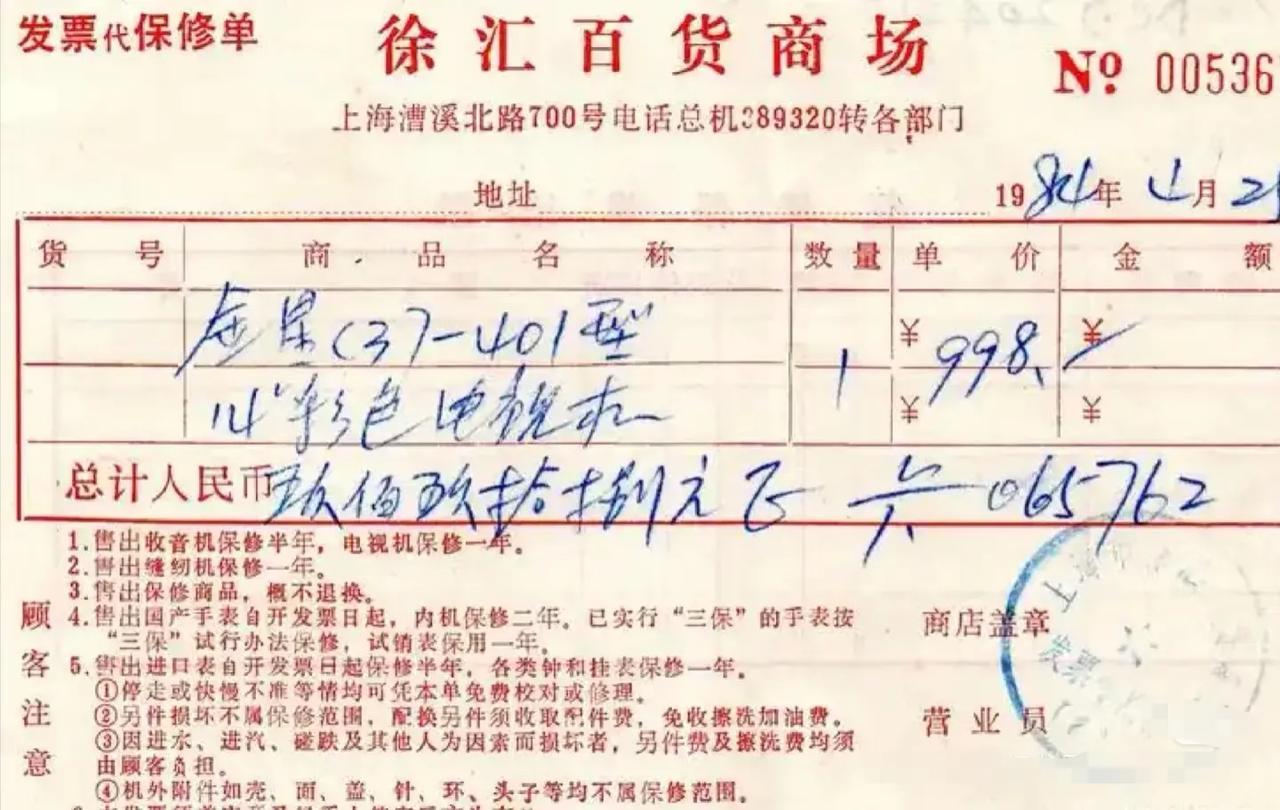 发票代保修单
徐汇百货商场
No 00536
上海漕溪北路700号电话总机389320转各部门
地址 1984年4月2
货号 商品名称 数量 单价 金额
金星C37-401型 1 ¥998. ¥
14"彩色电视机 ¥ ¥
总计人民币玖佰玖拾捌元正 六一065762
顾客注意
1.售出收音机保修半年，电视机保修一年。
2.售出缝纫机保修一年。
3.售出保修商品，概不退换。
4.售出国产手表自开发票日起，内机保修二年。已实行“三保”的手表按
“三保”试行办法保修，试销表保用一年。
5.售出进口表自开发票日起保修半年，各类钟和挂表保修一年。
①停走或快慢不准等情均可凭本单免费校对或修理。
②另件损坏不属保修范围，配换另件须收取配件费，免收擦洗加油费。
③因进水、进汽、碰跌及其他人为因素而损坏者，另件费及擦洗费均须
由顾客负担。
④机外附件如壳、面、盖、针、环、头子等均不属保修范围。
商店盖章
营业员
上海市
发票